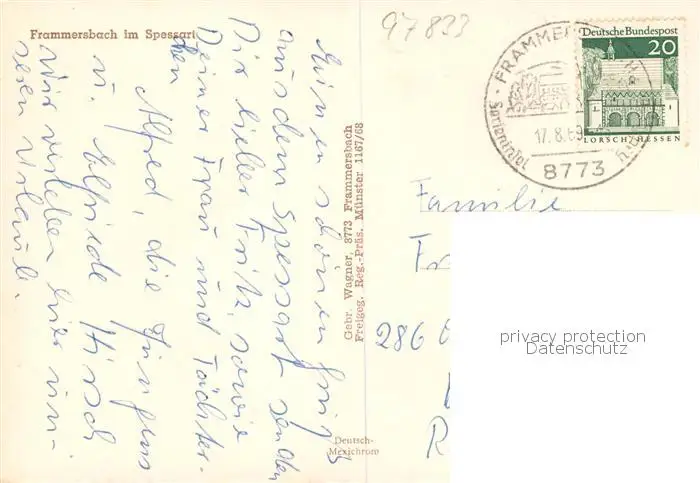 97833
Frammersbach im Spessart
Einen schönen Gruß
aus dem Spessart senden
Dir lieber Fritz, sowie
Deiner Frau und Töchter-
chen
Alfred, die Jungens
u. Elfriede Hirsch
Wir verleben hier un-
seren Urlaub.
Gebr. Wagner, 8773 Frammersbach
Freigeg. Reg.-Präs. Münster 1167/68
Deutsch-
Mexichrom
Deutsche Bundespost
20
LORSCH/HESSEN
FRAMMER
17.8.69
8773
Familie
286
privacy protection
Datenschutz